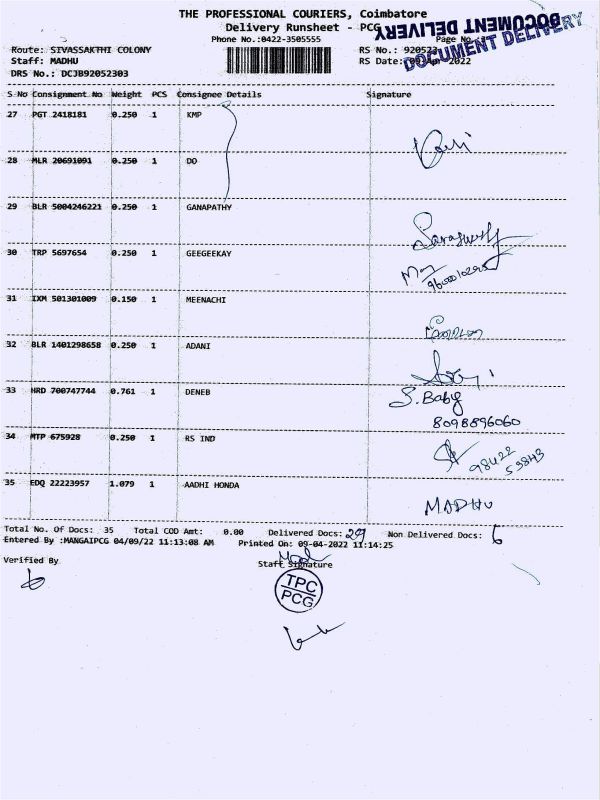 THE PROFESSIONAL COURIERS, Coimbatore
Delivery Runsheet - PCG
DOCUMENT DELIVERY
DOCUMENT DELIVERY
Phone No.:0422-3505555
Page No.
Route: SIVASSAKTHI COLONY
RS No.:
Staff: MADHU
RS Date: 2022
DRS No.: DCJB92052303
S No Consignment No Weight PCS Consignee Details Signature
27 PGT 2418181 0.250 1 KMP
28 MLR 20691091 0.250 1 DO
29 BLR 5004246221 0.250 1 GANAPATHY
30 TRP 5697654 0.250 1 GEEGEEKAY
31 IXM 501301009 0.150 1 MEENACHI
32 BLR 1401298658 0.250 1 ADANI
33 HRD 700747744 0.761 1 DENEB
S. Baby
8098896060
34 MTP 675928 0.250 1 RS IND
98422
35 EDQ 22223957 1.079 1 AADHI HONDA
MADHU
Total No. Of Docs: 35 Total COD Amt: 0.00 Delivered Docs: 29 Non Delivered Docs: 6
Entered By :MANGAIPCG 04/09/22 11:13:08 AM Printed On: 09-04-2022 11:14:25
Verified By
Staff Signature
TPC
PCG